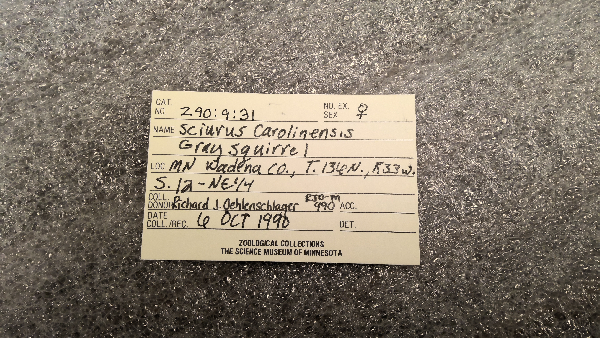 CAT. NO. Z90:9:31 NO. EX. SEX ♀
NAME Sciurus Carolinensis
Gray squirrel
LOC. MN Wadena Co., T. 136N., R33W.
S. 12-NE1/4
COLL. DONOR Richard J. Oehlenschlager RJO-M 990 ACC.
DATE COLL./REC. 6 OCT 1990 DET.
ZOOLOGICAL COLLECTIONS
THE SCIENCE MUSEUM OF MINNESOTA